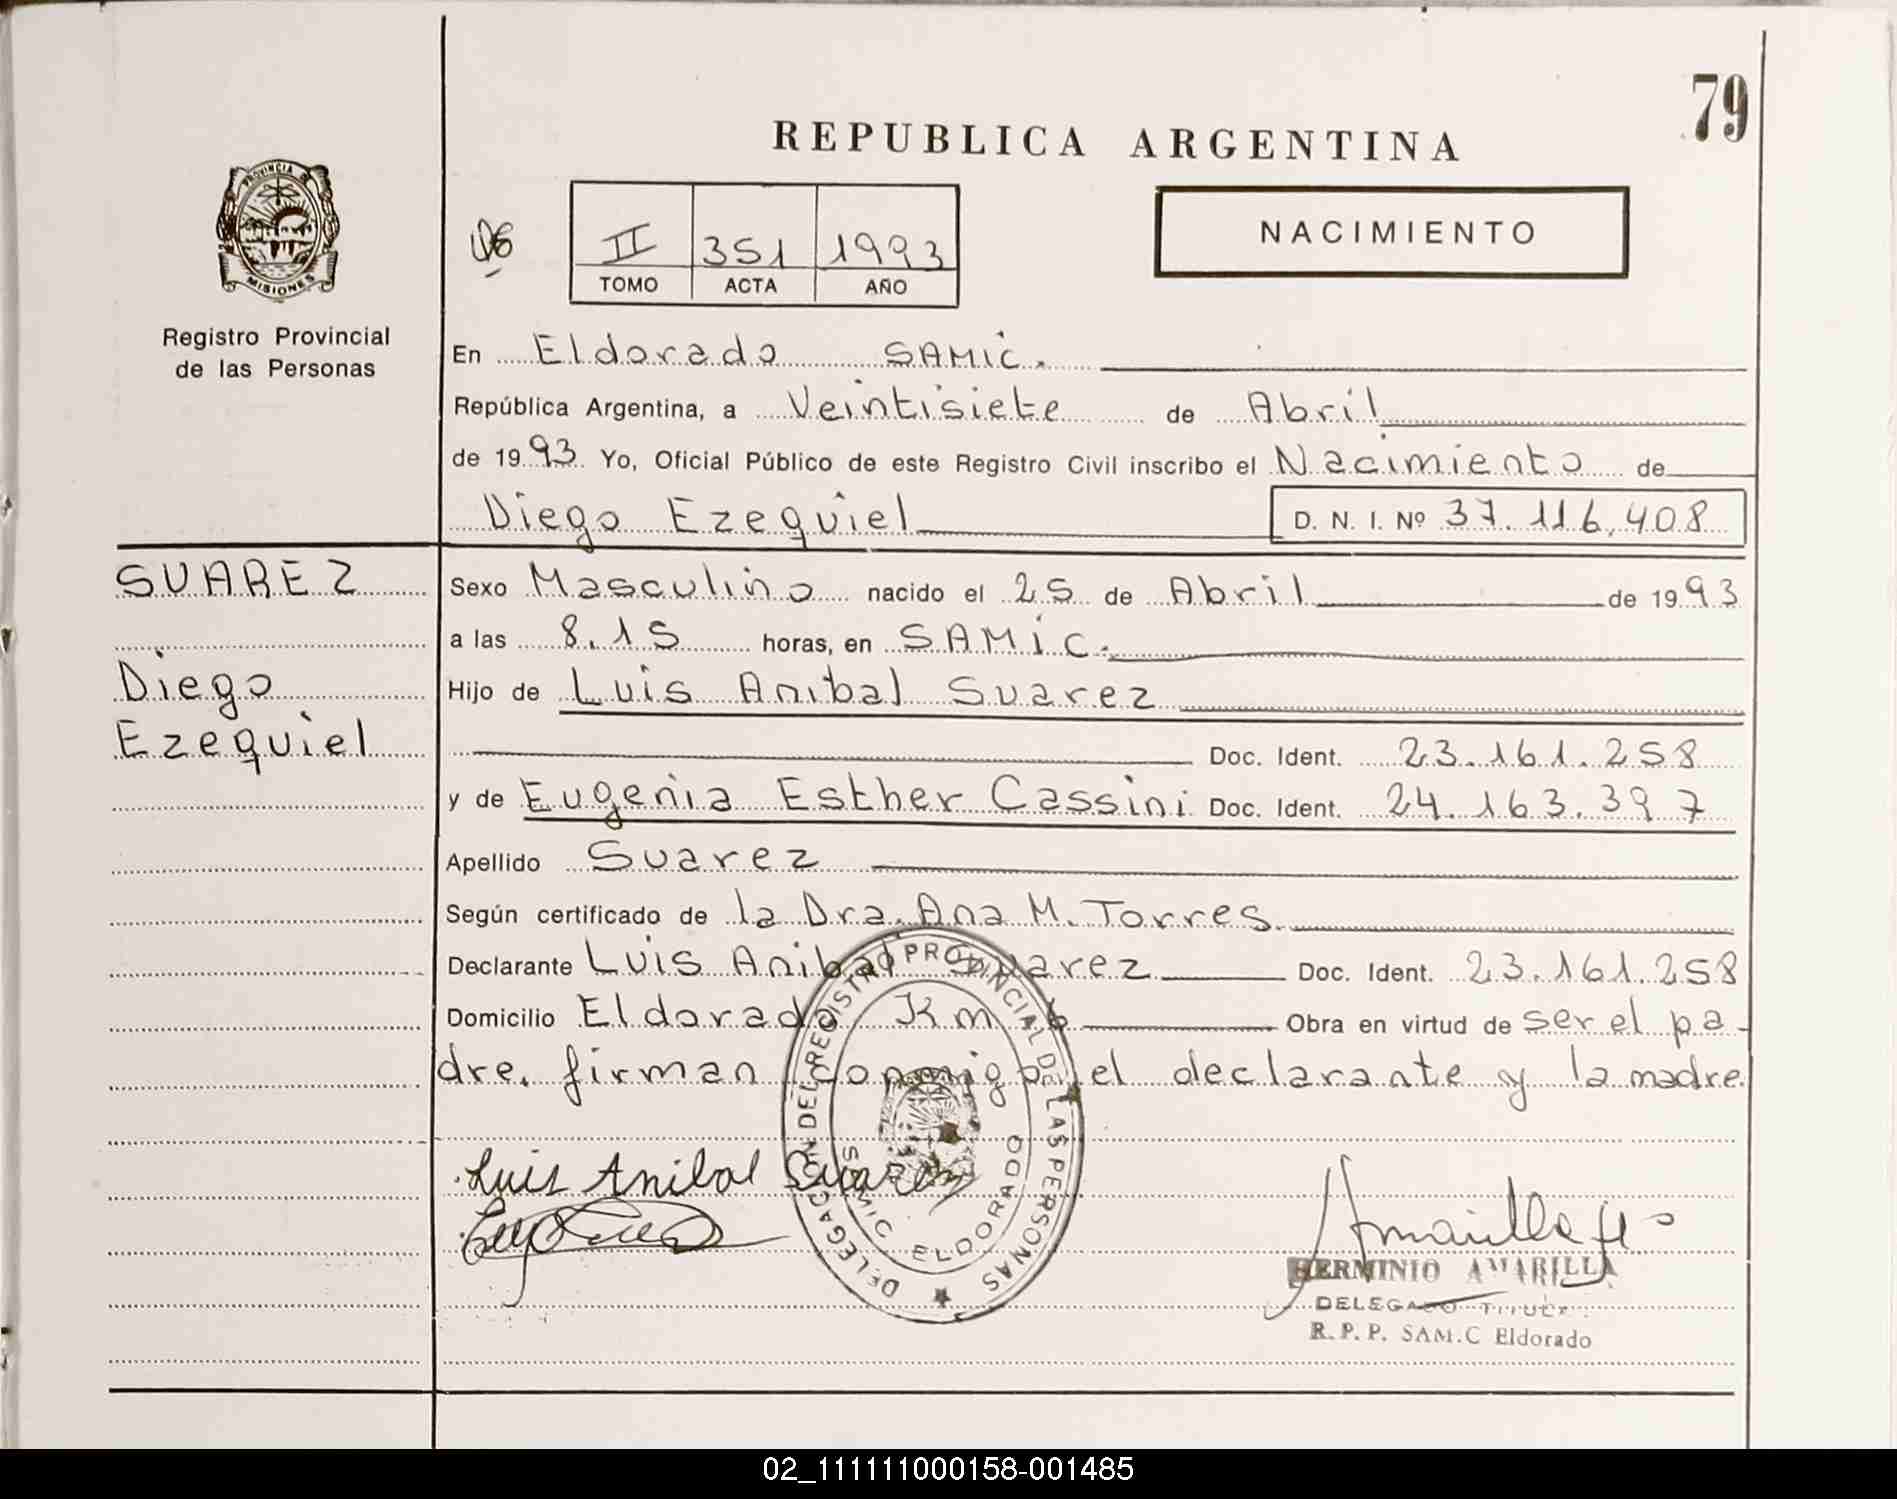 79
REPUBLICA ARGENTINA
PROVINCIA DE
MISIONES
Registro Provincial
de las Personas
II 351 1993
TOMO ACTA AÑO
NACIMIENTO
En Eldorado SAMIC.
República Argentina, a Veintisiete de Abril
de 1993 Yo, Oficial Público de este Registro Civil inscribo el Nacimiento de
Diego Ezequiel D. N. I. Nº 37.116.408
SUAREZ
Diego
Ezequiel
Sexo Masculino nacido el 25 de Abril de 1993
a las 8.15 horas, en SAMIC.
Hijo de Luis Anibal Suarez
Doc. Ident. 23.161.258
y de Eugenia Esther Cassini Doc. Ident. 24.163.397
Apellido Suarez
Según certificado de la Dra. Ana M. Torres.
Declarante Luis Anibal Suarez Doc. Ident. 23.161.258
Domicilio Eldorado Km 6 Obra en virtud de ser el pa-
dre. firman conmigo el declarante y la madre
DELEGACION DEL REGISTRO PROVINCIAL DE LAS PERSONAS
SAMIC ELDORADO
Luis Anibal Suarez
HERMINIO AMARILLA
DELEGADO TITULAR
R. P. P. SAM.C Eldorado
02_111111000158-001485